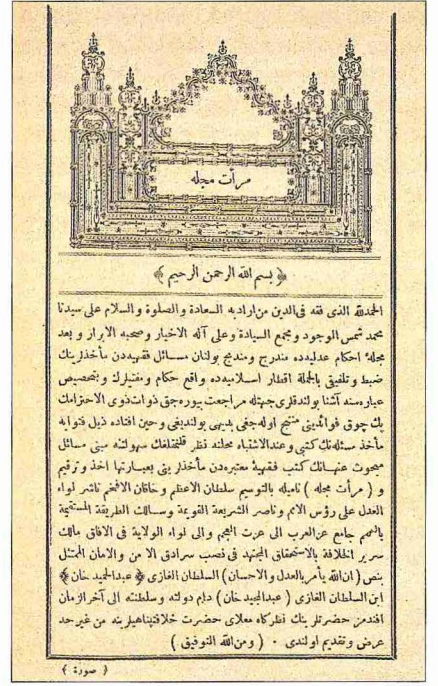 مرأت مجله
﴿ بسم الله الرحمن الرحيم ﴾
الحمدلله الذى فقه فى الدين من ارادبه السعادة والصلوة والسلام على سيدنا
محمد شمس الوجود ومجمع السيادة وعلى آله الاخيار وصحبه الابرار وبعد
مجلۀ احكام عدليه‌ده مندرج ومندمج بولنان مسائل فقهيه‌دن مأخذلرينك
ضبط وتلفيقى بالجملة اقطار اسلاميه‌ده واقع حكام ومفتيلرك وبتخصيص
عباره‌سنه آشنا بولندقلرى جهتله مراجعت بيوره‌جق ذوات ذوى الاحترامك
پك چوق فوائدينى منتج اوله‌جغى بديهى بولنديغى وحين افتاده ذيل فتوايه
مأخذ مسئله‌نك كتبى وعندالاشتباه محلنه نظر قلنمقلغك سهولتنه مبنى مسائل
مبحوث عنهانك كتب فقهيۀ معتبره‌دن مأخذلرينى بعبارتها اخذ وترقيم
و ( مرأت مجله ) ناميله بالتوسيم سلطان الاعظم وخاقان الافخم ناشر لواء
العدل على رؤس الامم وناصر الشريعة القويمة وسالك الطريقة المستقيمة
بالهمم جامع عز العرب الى عزت العجم والى لواء الولاية فى الافاق مالك
سرير الخلافة بالاستحقاق المجتهد فى نصب سرادق الامن والامان الممتثل
بنص ( ان الله يأمر بالعدل والاحسان ) السلطان الغازى ﴿ عبدالحميد خان ﴾
ابن السلطان الغازى ( عبدالمجيد خان ) دام دولته وسلطنته الى آخرالزمان
افندمز حضرتلرينك نظركاه معلاى حضرت خلافتپناهيلرينه من غير حد
عرض وتقديم اولندى . ( ومن الله التوفيق )
( صورة )